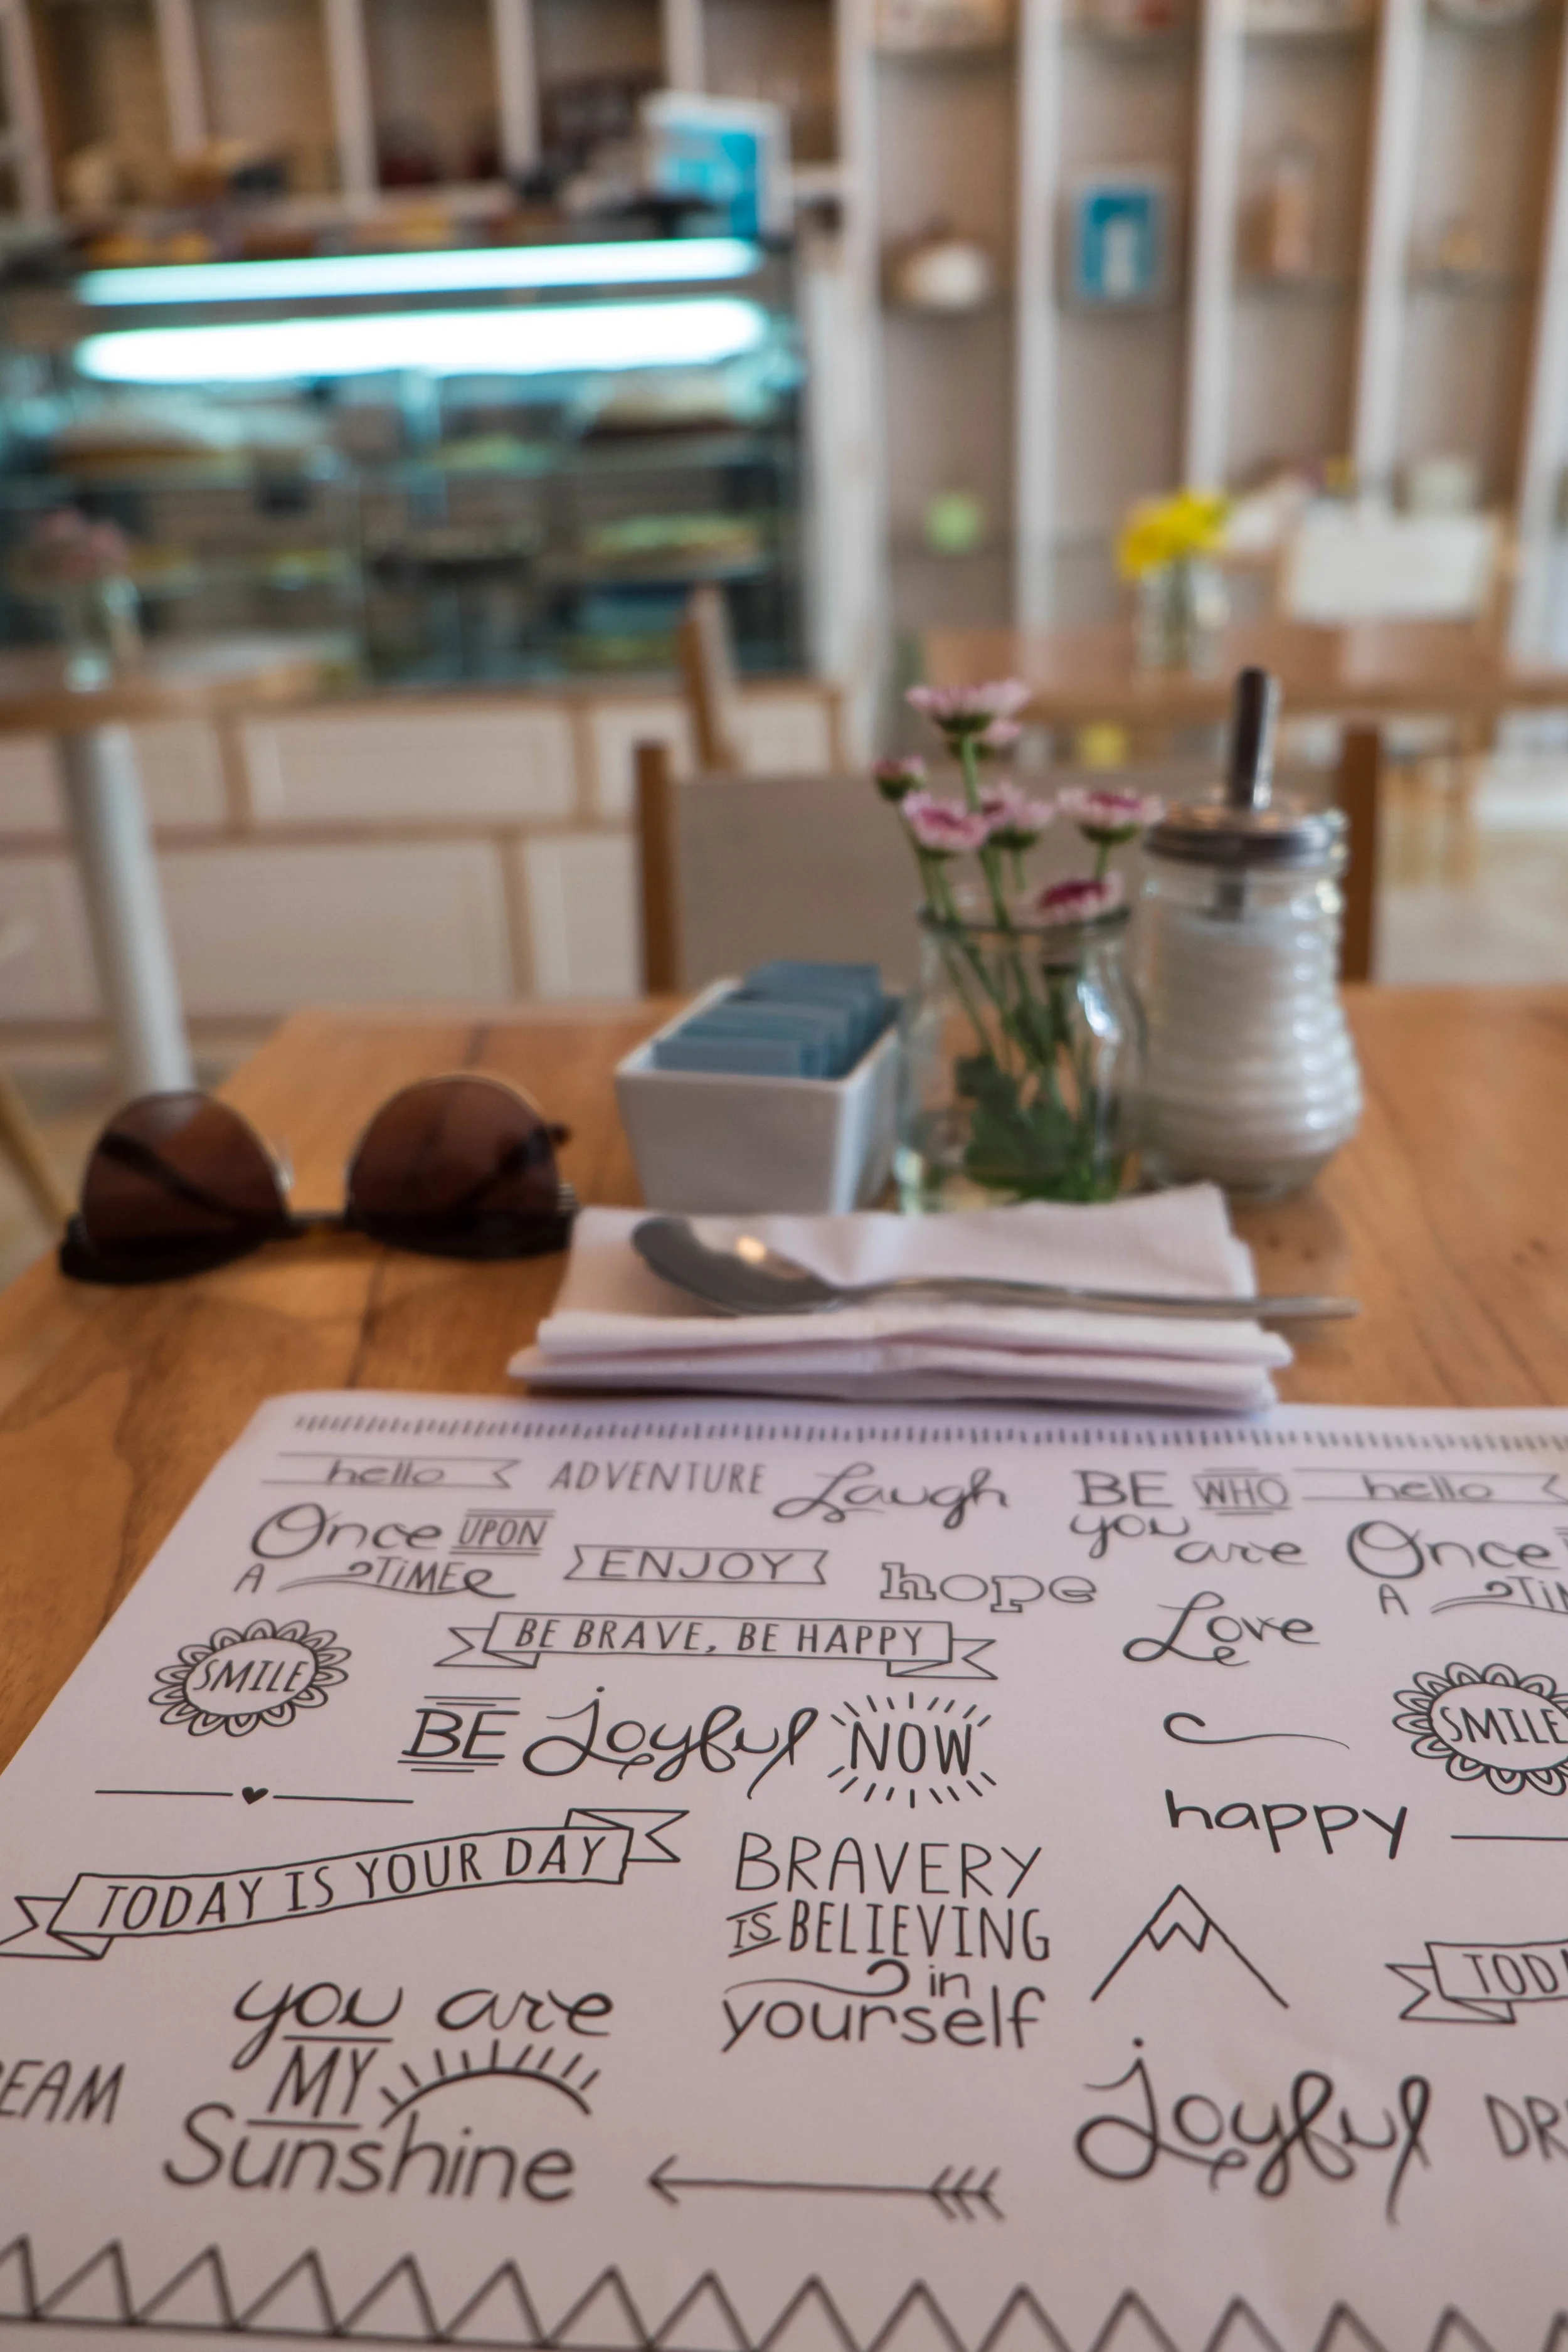 hello
ADVENTURE
Laugh
BE WHO
you are
hello
Once UPON
A TIME
ENJOY
hope
Once
A
BE BRAVE, BE HAPPY
Love
SMILE
SMILE
BE Joyful NOW
happy
TODAY IS YOUR DAY
BRAVERY
IS BELIEVING
in
yourself
you are
MY
Sunshine
Joyful